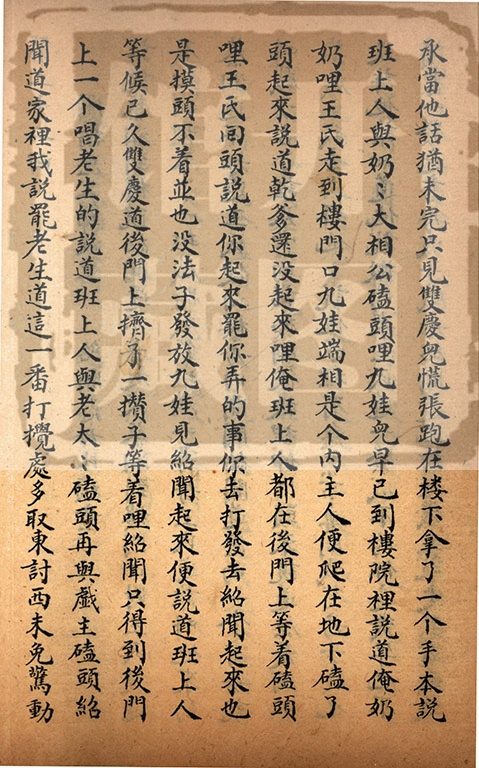 承當他話猶未完只見雙慶兒慌張跑在楼下拿了一个手本説
班上人與奶〻大相公磕頭哩九娃兒早已到樓院裡説道俺奶
奶哩王氏走到樓門口九娃端相是个内主人便爬在地下磕了
頭起來説道乾爹還没起來哩俺班上人都在後門上等着磕頭
哩王氏回頭説道你起來罷你弄的事你去打發去紹聞起來也
是摸頭不着並也没法子發放九娃見紹聞起來便說道班上人
等候已久雙慶道後門上擠了一攢子等着哩紹聞只得到後門
上一个唱老生的説道班上人與老太〻磕頭再與戯主磕頭紹
聞道家裡我説罷老生道這一番打攪處多取東討西未免驚動